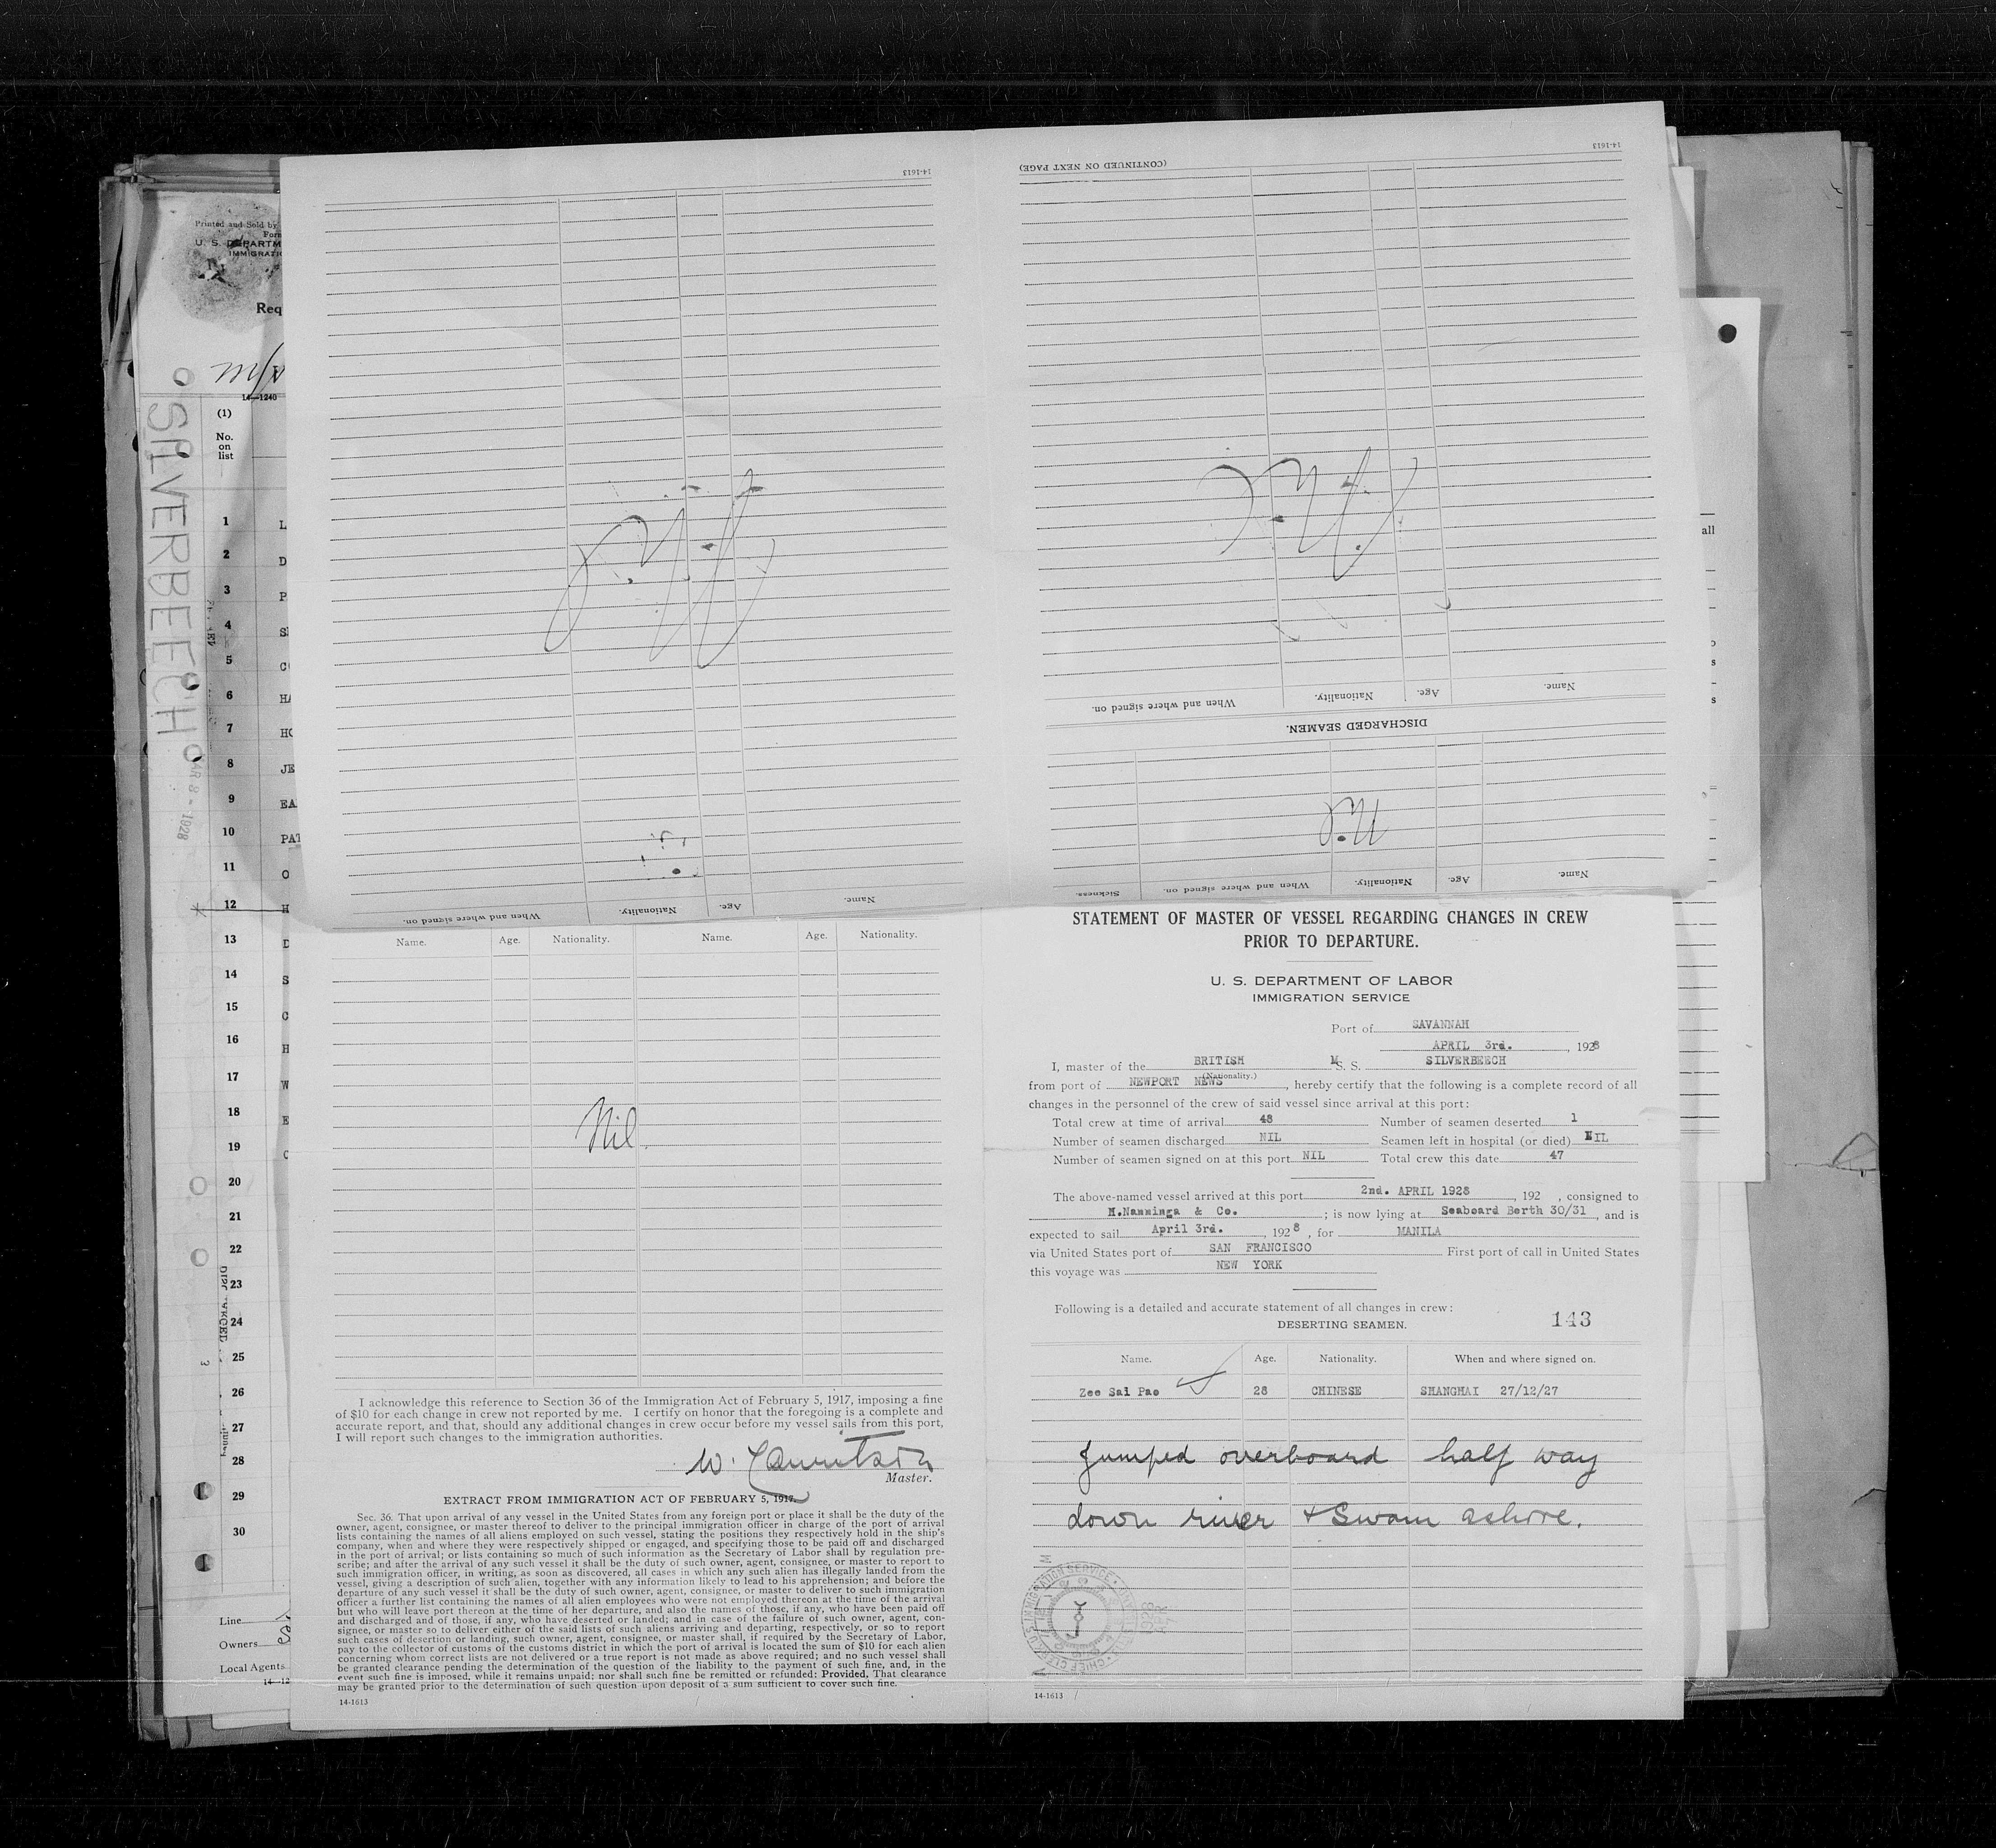 Printed and Sold by
U. S. DEPARTM
IMMIGRATIO
Req
14—1240
(1)
No.
on
list
SILVERBEECH
1
2
3
4
5
6
7
8
9
10
11
12
13
14
15
16
17
18
19
20
21
22
23
24
25
26
27
28
29
30
HA
JE
EA
PAT
Line
Owners
Local Agents
14—12
14-1613
When and where signed on.
Nationality.
Age.
Name.
14-1613
(CONTINUED ON NEXT PAGE)
When and where signed on.
Nationality.
Age.
Name.
DISCHARGED SEAMEN.
Sickness.
When and where signed on.
Nationality.
Age.
Name.
Name. Age. Nationality. Name. Age. Nationality.
Nil
I acknowledge this reference to Section 36 of the Immigration Act of February 5, 1917, imposing a fine
of $10 for each change in crew not reported by me. I certify on honor that the foregoing is a complete and
accurate report, and that, should any additional changes in crew occur before my vessel sails from this port,
I will report such changes to the immigration authorities.
Master.
EXTRACT FROM IMMIGRATION ACT OF FEBRUARY 5, 1917.
Sec. 36. That upon arrival of any vessel in the United States from any foreign port or place it shall be the duty of the
owner, agent, consignee, or master thereof to deliver to the principal immigration officer in charge of the port of arrival
lists containing the names of all aliens employed on such vessel, stating the positions they respectively hold in the ship's
company, when and where they were respectively shipped or engaged, and specifying those to be paid off and discharged
in the port of arrival; or lists containing so much of such information as the Secretary of Labor shall by regulation pre-
scribe; and after the arrival of any such vessel it shall be the duty of such owner, agent, consignee, or master to report to
such immigration officer, in writing, as soon as discovered, all cases in which any such alien has illegally landed from the
vessel, giving a description of such alien, together with any information likely to lead to his apprehension; and before the
departure of any such vessel it shall be the duty of such owner, agent, consignee, or master to deliver to such immigration
officer a further list containing the names of all alien employees who were not employed thereon at the time of the arrival
but who will leave port thereon at the time of her departure, and also the names of those, if any, who have been paid off
and discharged and of those, if any, who have deserted or landed; and in case of the failure of such owner, agent, con-
signee, or master so to deliver either of the said lists of such aliens arriving and departing, respectively, or so to report
such cases of desertion or landing, such owner, agent, consignee, or master shall, if required by the Secretary of Labor,
pay to the collector of customs of the customs district in which the port of arrival is located the sum of $10 for each alien
concerning whom correct lists are not delivered or a true report is not made as above required; and no such vessel shall
be granted clearance pending the determination of the question of the liability to the payment of such fine, and, in the
event such fine is imposed, while it remains unpaid; nor shall such fine be remitted or refunded: Provided, That clearance
may be granted prior to the determination of such question upon deposit of a sum sufficient to cover such fine.
14-1613
STATEMENT OF MASTER OF VESSEL REGARDING CHANGES IN CREW
PRIOR TO DEPARTURE.
U. S. DEPARTMENT OF LABOR
IMMIGRATION SERVICE
Port of SAVANNAH
APRIL 3rd. , 1928
I, master of the BRITISH M S. S. SILVERBEECH
(Nationality.)
from port of NEWPORT NEWS , hereby certify that the following is a complete record of all
changes in the personnel of the crew of said vessel since arrival at this port:
Total crew at time of arrival 48 Number of seamen deserted 1
Number of seamen discharged NIL Seamen left in hospital (or died) NIL
Number of seamen signed on at this port NIL Total crew this date 47
The above-named vessel arrived at this port 2nd. APRIL 1928 , 192 , consigned to
H.Nanninga & Co. ; is now lying at Seaboard Berth 30/31 , and is
expected to sail April 3rd. , 1928 , for MANILA
via United States port of SAN FRANCISCO First port of call in United States
this voyage was NEW YORK
Following is a detailed and accurate statement of all changes in crew:
DESERTING SEAMEN. 143
Name. Age. Nationality. When and where signed on.
Zee Sai Pao 28 CHINESE SHANGHAI 27/12/27
Jumped overboard half way
down river & Swam ashore.
14-1613
all